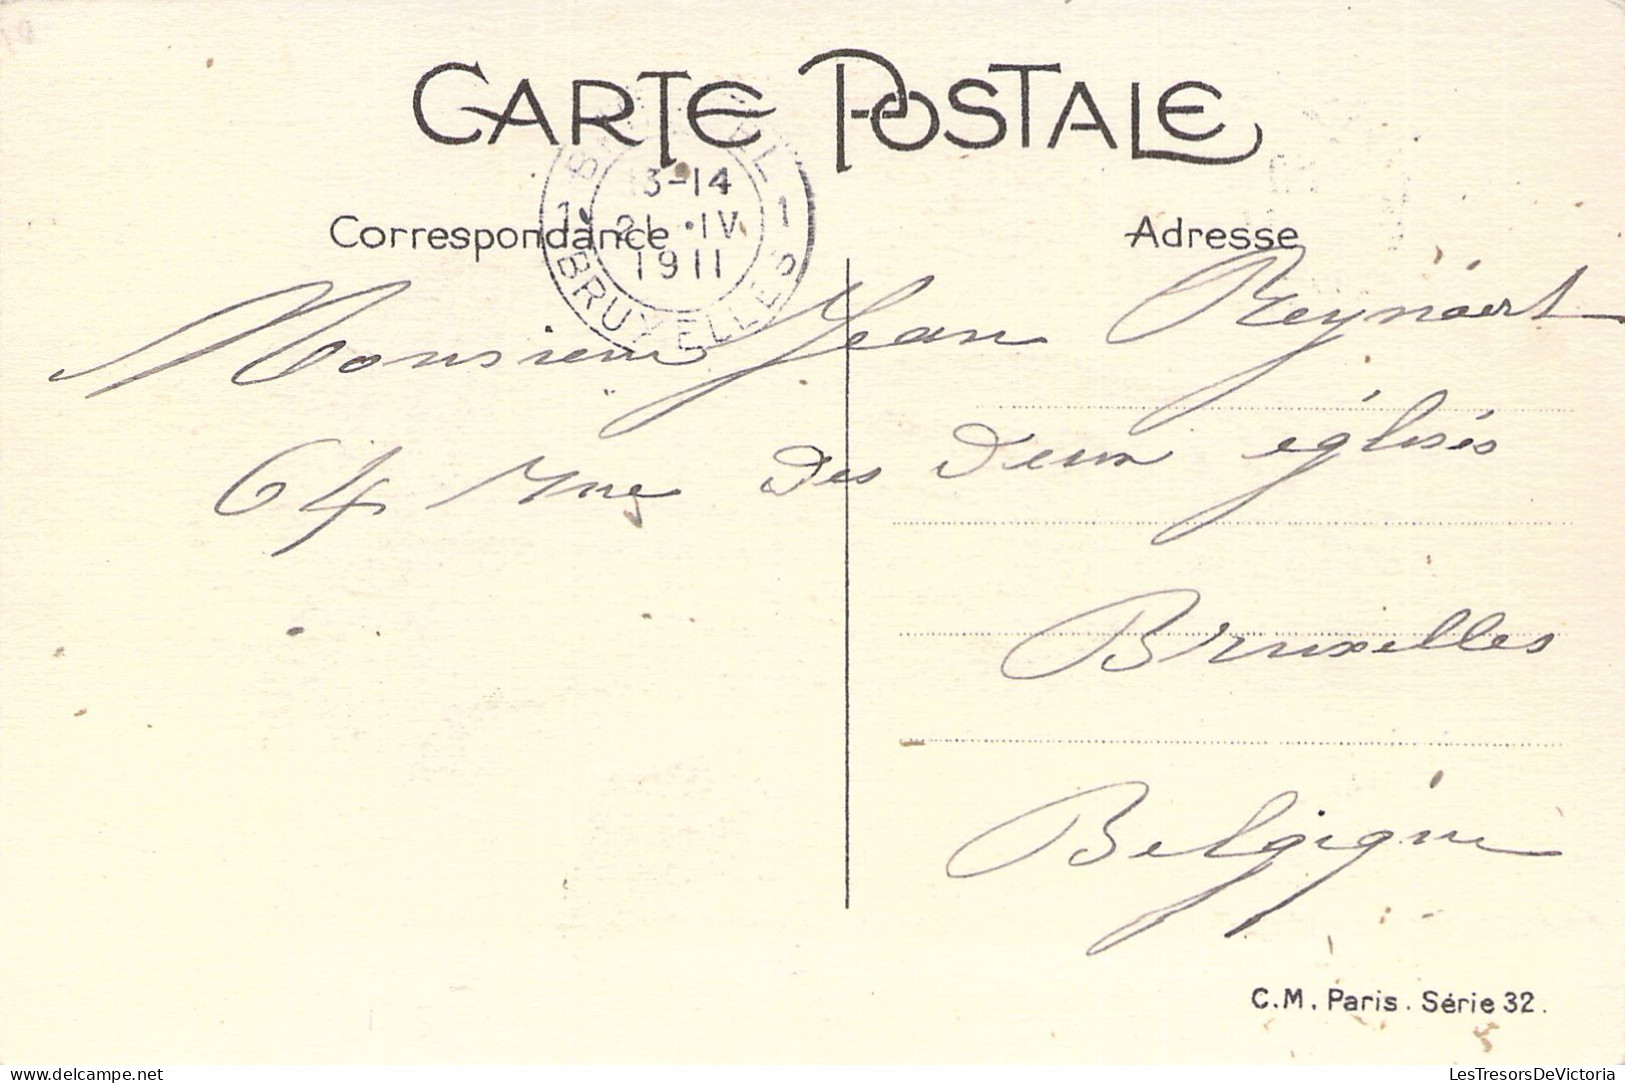 CARTE POSTALE
BRUXELLES 1
13-14
1 21 •IV 1
1911
BRUXELLES
Correspondance
Adresse
Monsieur Jean Reynaert
64 rue des deux églisés
Bruxelles
Belgique
C.M. Paris. Série 32.
LesTresorsDeVictoria